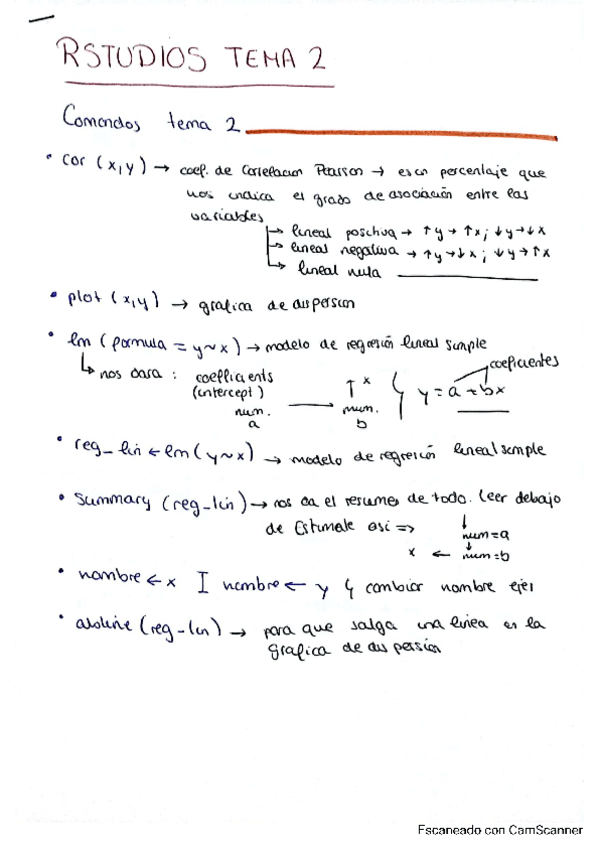 RSTUDIOS TEMA 2
Comandos tema 2
• cor (x,y) → coef. de Correlacion Pearson → es un porcentaje que
nos indica el grado de asociación entre las
variables
→ lineal positiva → ↑y → ↑x ; ↓y → ↓x
→ lineal negativa → ↑y → ↓x ; ↓y → ↑x
→ lineal nula
• plot (x,y) → grafica de dispersion
• lm (formula = y~x) → modelo de regresión lineal simple
↳ nos dara : coefficients
(intercept)
num.
a
x
num.
b
y = a + bx
coeficientes
• reg_lin ← lm(y~x) → modelo de regresión lineal simple
• Summary (reg_lin) → nos da el resumen de todo. Leer debajo
de Estimate asi =>
num=a
x ← num=b
• nombre ← x I nombre ← y cambiar nombre ejes
• abline (reg-lin) → para que salga una linea en la
grafica de dispersión
Escaneado con CamScanner